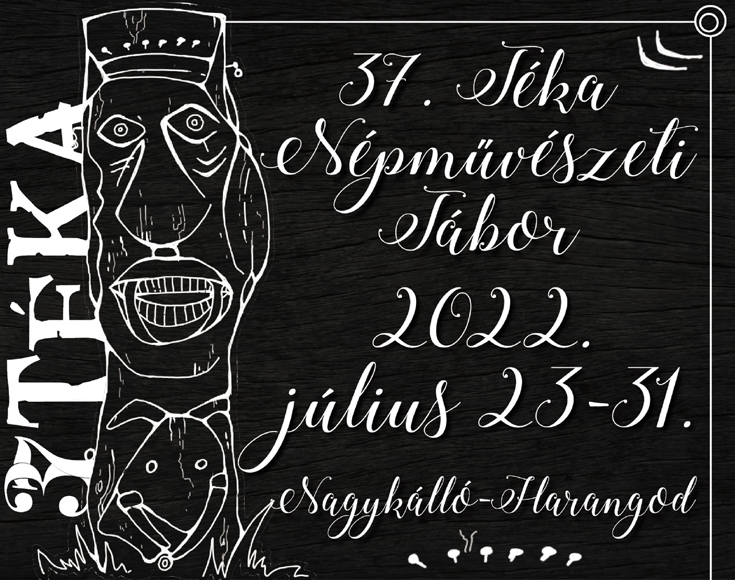 37 TÉKA
37. Téka
Népművészeti
Tábor
2022.
július 23-31.
Nagykálló-Harangod